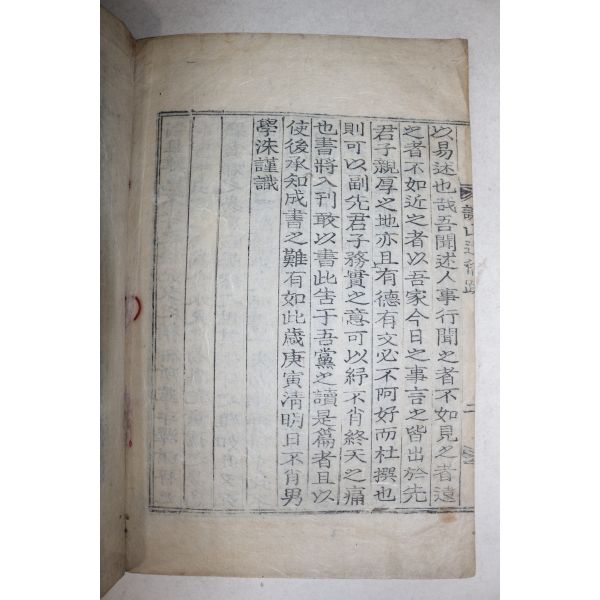 以易述也哉吾聞述人事行聞之者不如見之者遠
之者不如近之者以吾家今日之事言之皆出於先
君子親厚之地亦且有德有文必不阿好而杜撰也
則可以副先君子務實之意可以紓不肖終天之痛
也書將入刊敢以書此告于吾黨之讀是篇者且以
使後承知成書之難有如此歲庚寅清明日不肖男
學洙謹識